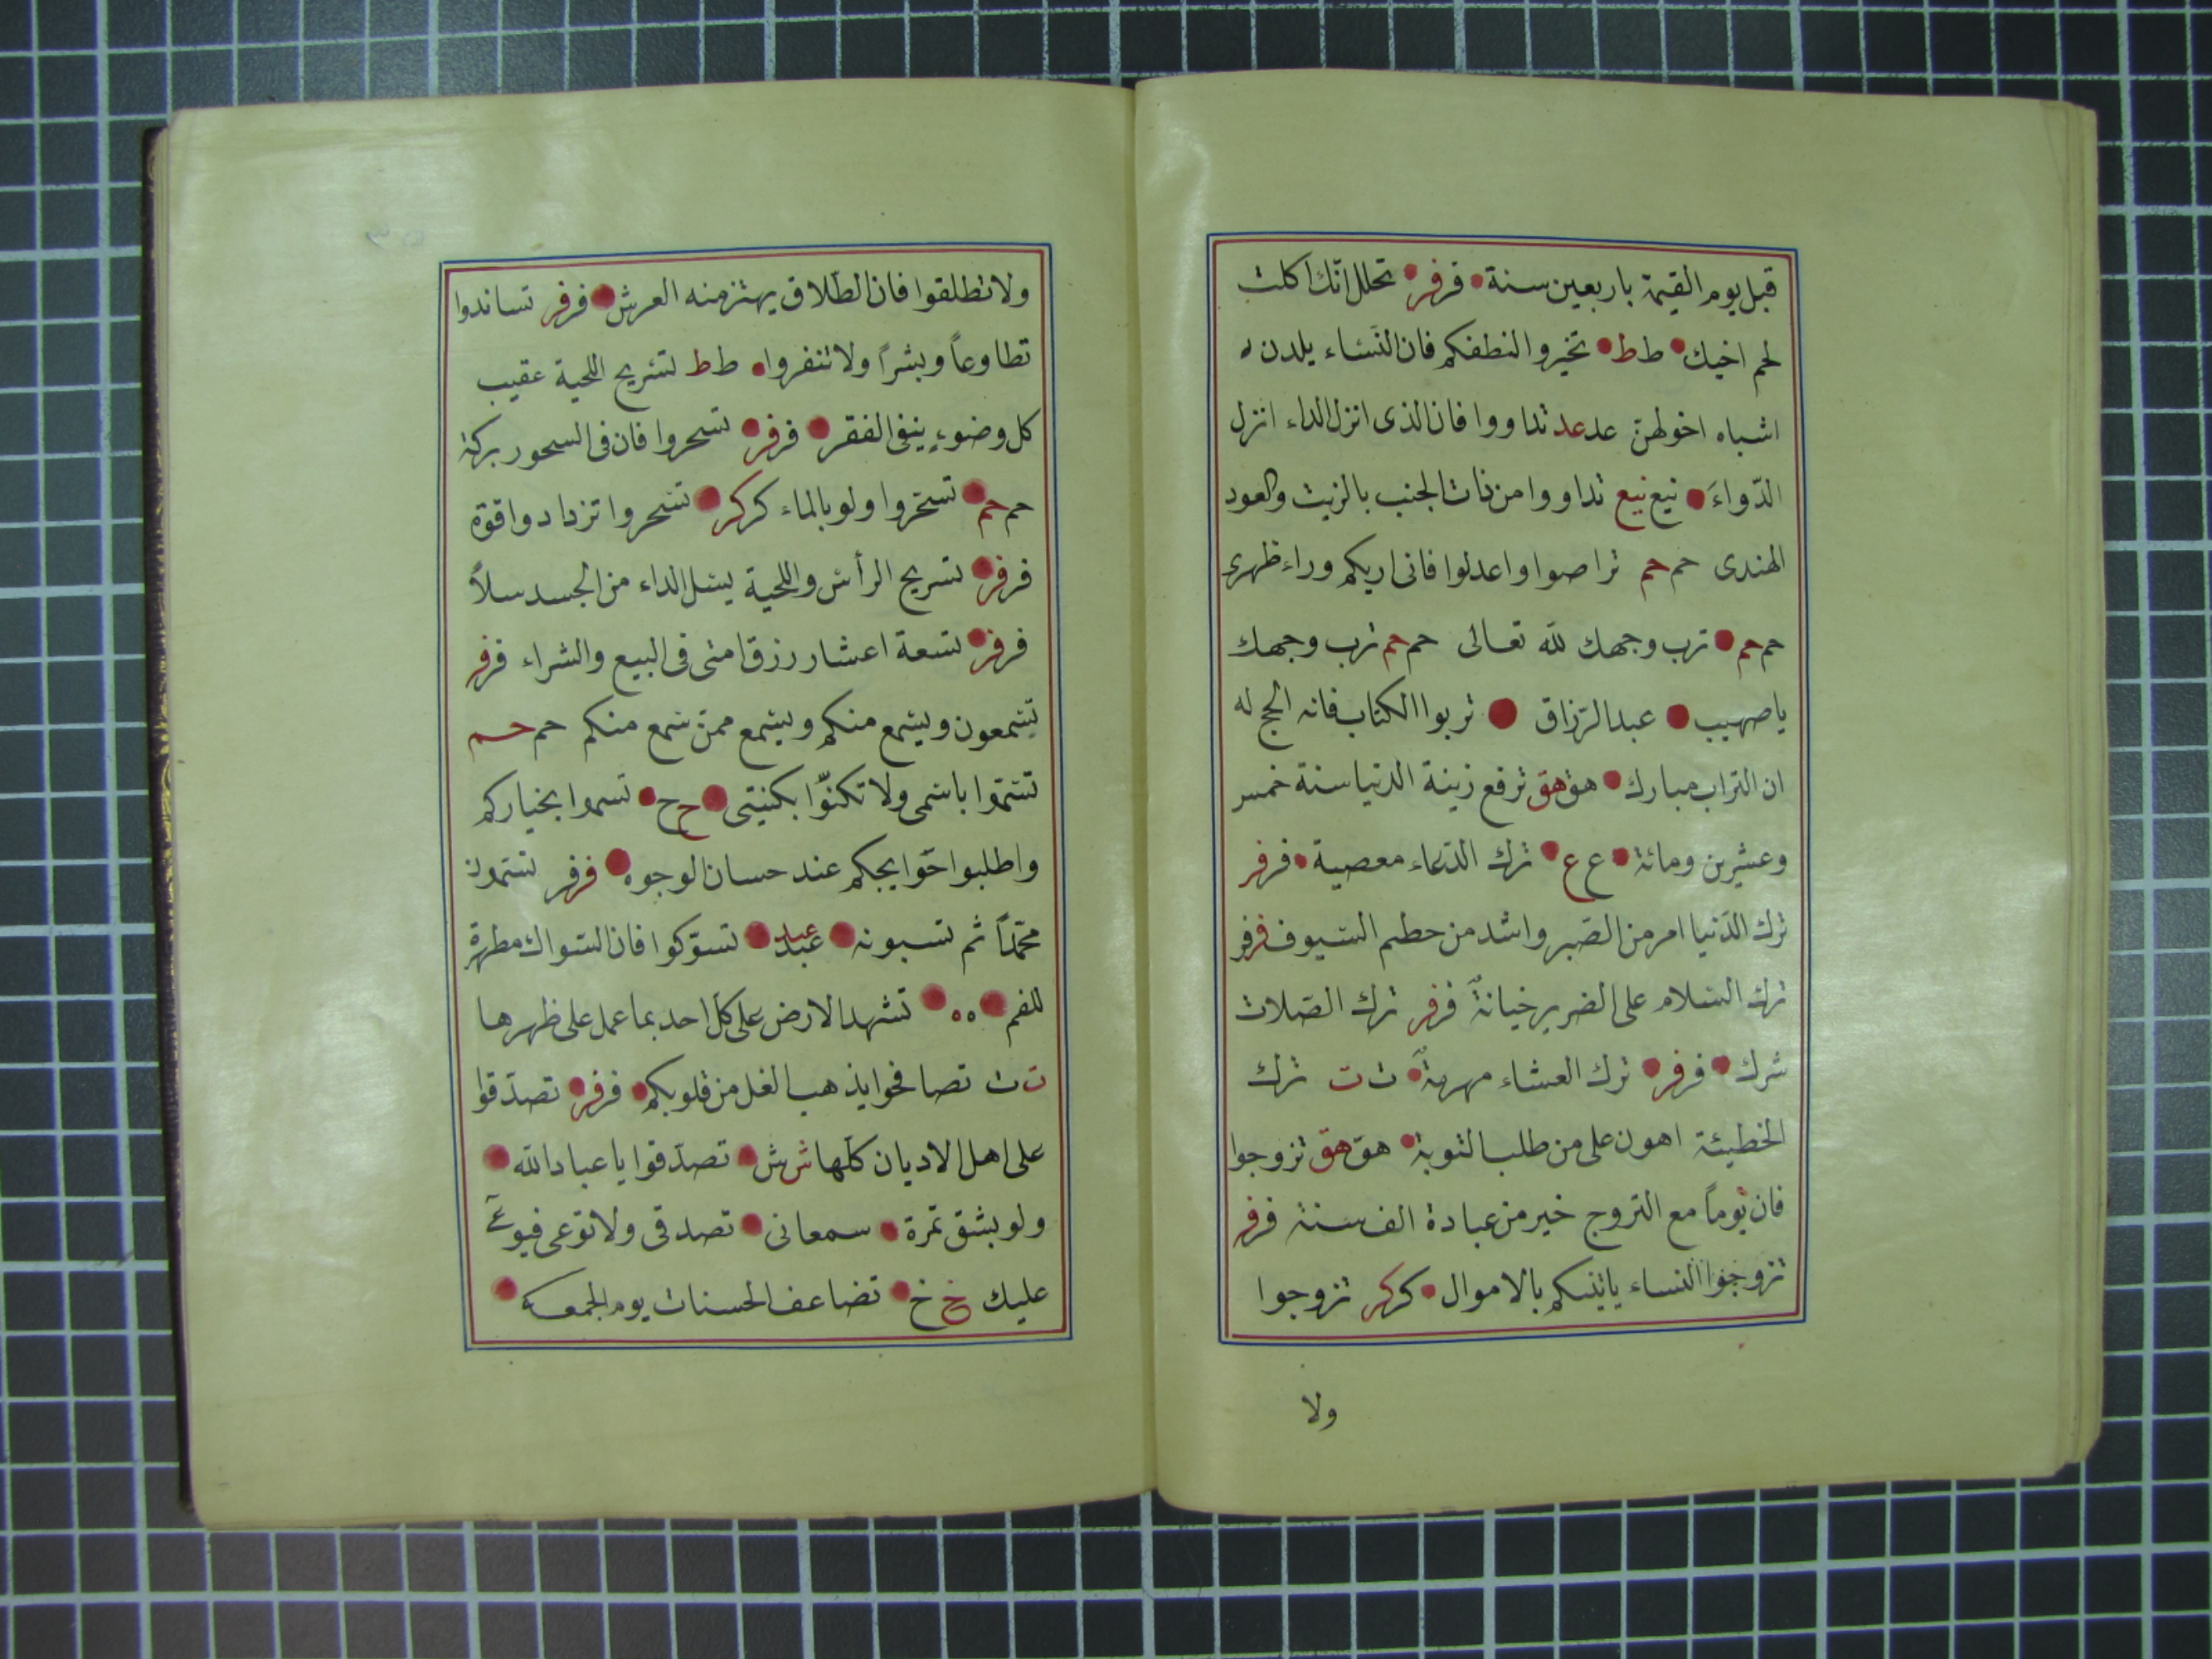 قبل يوم القيمة باربعين سنة فرفر تحلل انّك اكلت
لحم اخيك ط ط تخيروا لنطفكم فان النّساء يلدن
اشباه اخولهنّ عد عد تداووا فان الذى انزل الداء انزل
الدّواءَ نيع نيع تداووا من ذات الجنب بالزيت والعود
الهندى حم حم تراصوا واعدلوا فانى اريكم وراء ظهرى
حم حم ترب وجهك لله تعالى حم حم ترب وجهك
يا صهيب عبد الرّزاق تربوا الكتاب فانه الحج له
ان التراب مبارك هق هق ترفع زينة الدنيا سنة خمس
وعشرين ومائة ع ع ترك الدّعاء معصية فرفر
ترك الدّنيا امر من الصّبر واشد من حطم السّيوف فرفر
ترك السّلام على الضرير خيانةٌ فرفر ترك الصّلات
شرك فرفر ترك العشاء مهرمةٌ ت ت ترك
الخطيئة اهون على من طلب التوبة هق هق تزوجوا
فان يوماً مع التزوج خير من عبادة الف سنة فرفر
تزوجوا النساء ياتينكم بالاموال كركر تزوجوا
ولا
ولا تطلقوا فان الطّلاق يهتز منه العرش فرفر تساندوا
تطاوعاً وبشراً ولا تنفروا ط ط تسريح اللحية عقيب
كل وضوءٍ ينفى الفقر فرفر تسحروا فان فى السحور بركة
حم حم تسحروا ولو بالماء كركر تسحروا تزدادوا قوّة
فرفر تسريح الرأس واللحية يسل الداء من الجسد سلاً
فرفر تسعة اعشار رزق امتى فى البيع والشراء فرفر
تسمعون ويسمع منكم ويسمع ممّن سمع منكم حم حم
تسمّوا باسمى ولا تكنّوا بكنيتى ح ح تسموا بخياركم
واطلبوا حَوايجكم عند حسان الوجوه فرفر تسمّون
محمّداً ثم تسبونه عبد عبد تسوّكوا فان السّواك مطهرة
للفم ه ه تشهد الارض على كلّ احد بما عمل على ظهرها
ت ت تصافحوا يذهب الغل من قلوبكم فرفر تصدّقوا
على اهل الاديان كلّها ش ش تصدّقوا يا عباد الله
ولو بشق تمرة سمعانى تصدقى ولا توعى فيوعى
عليك خ خ تضاعف الحسنات يوم الجمعة